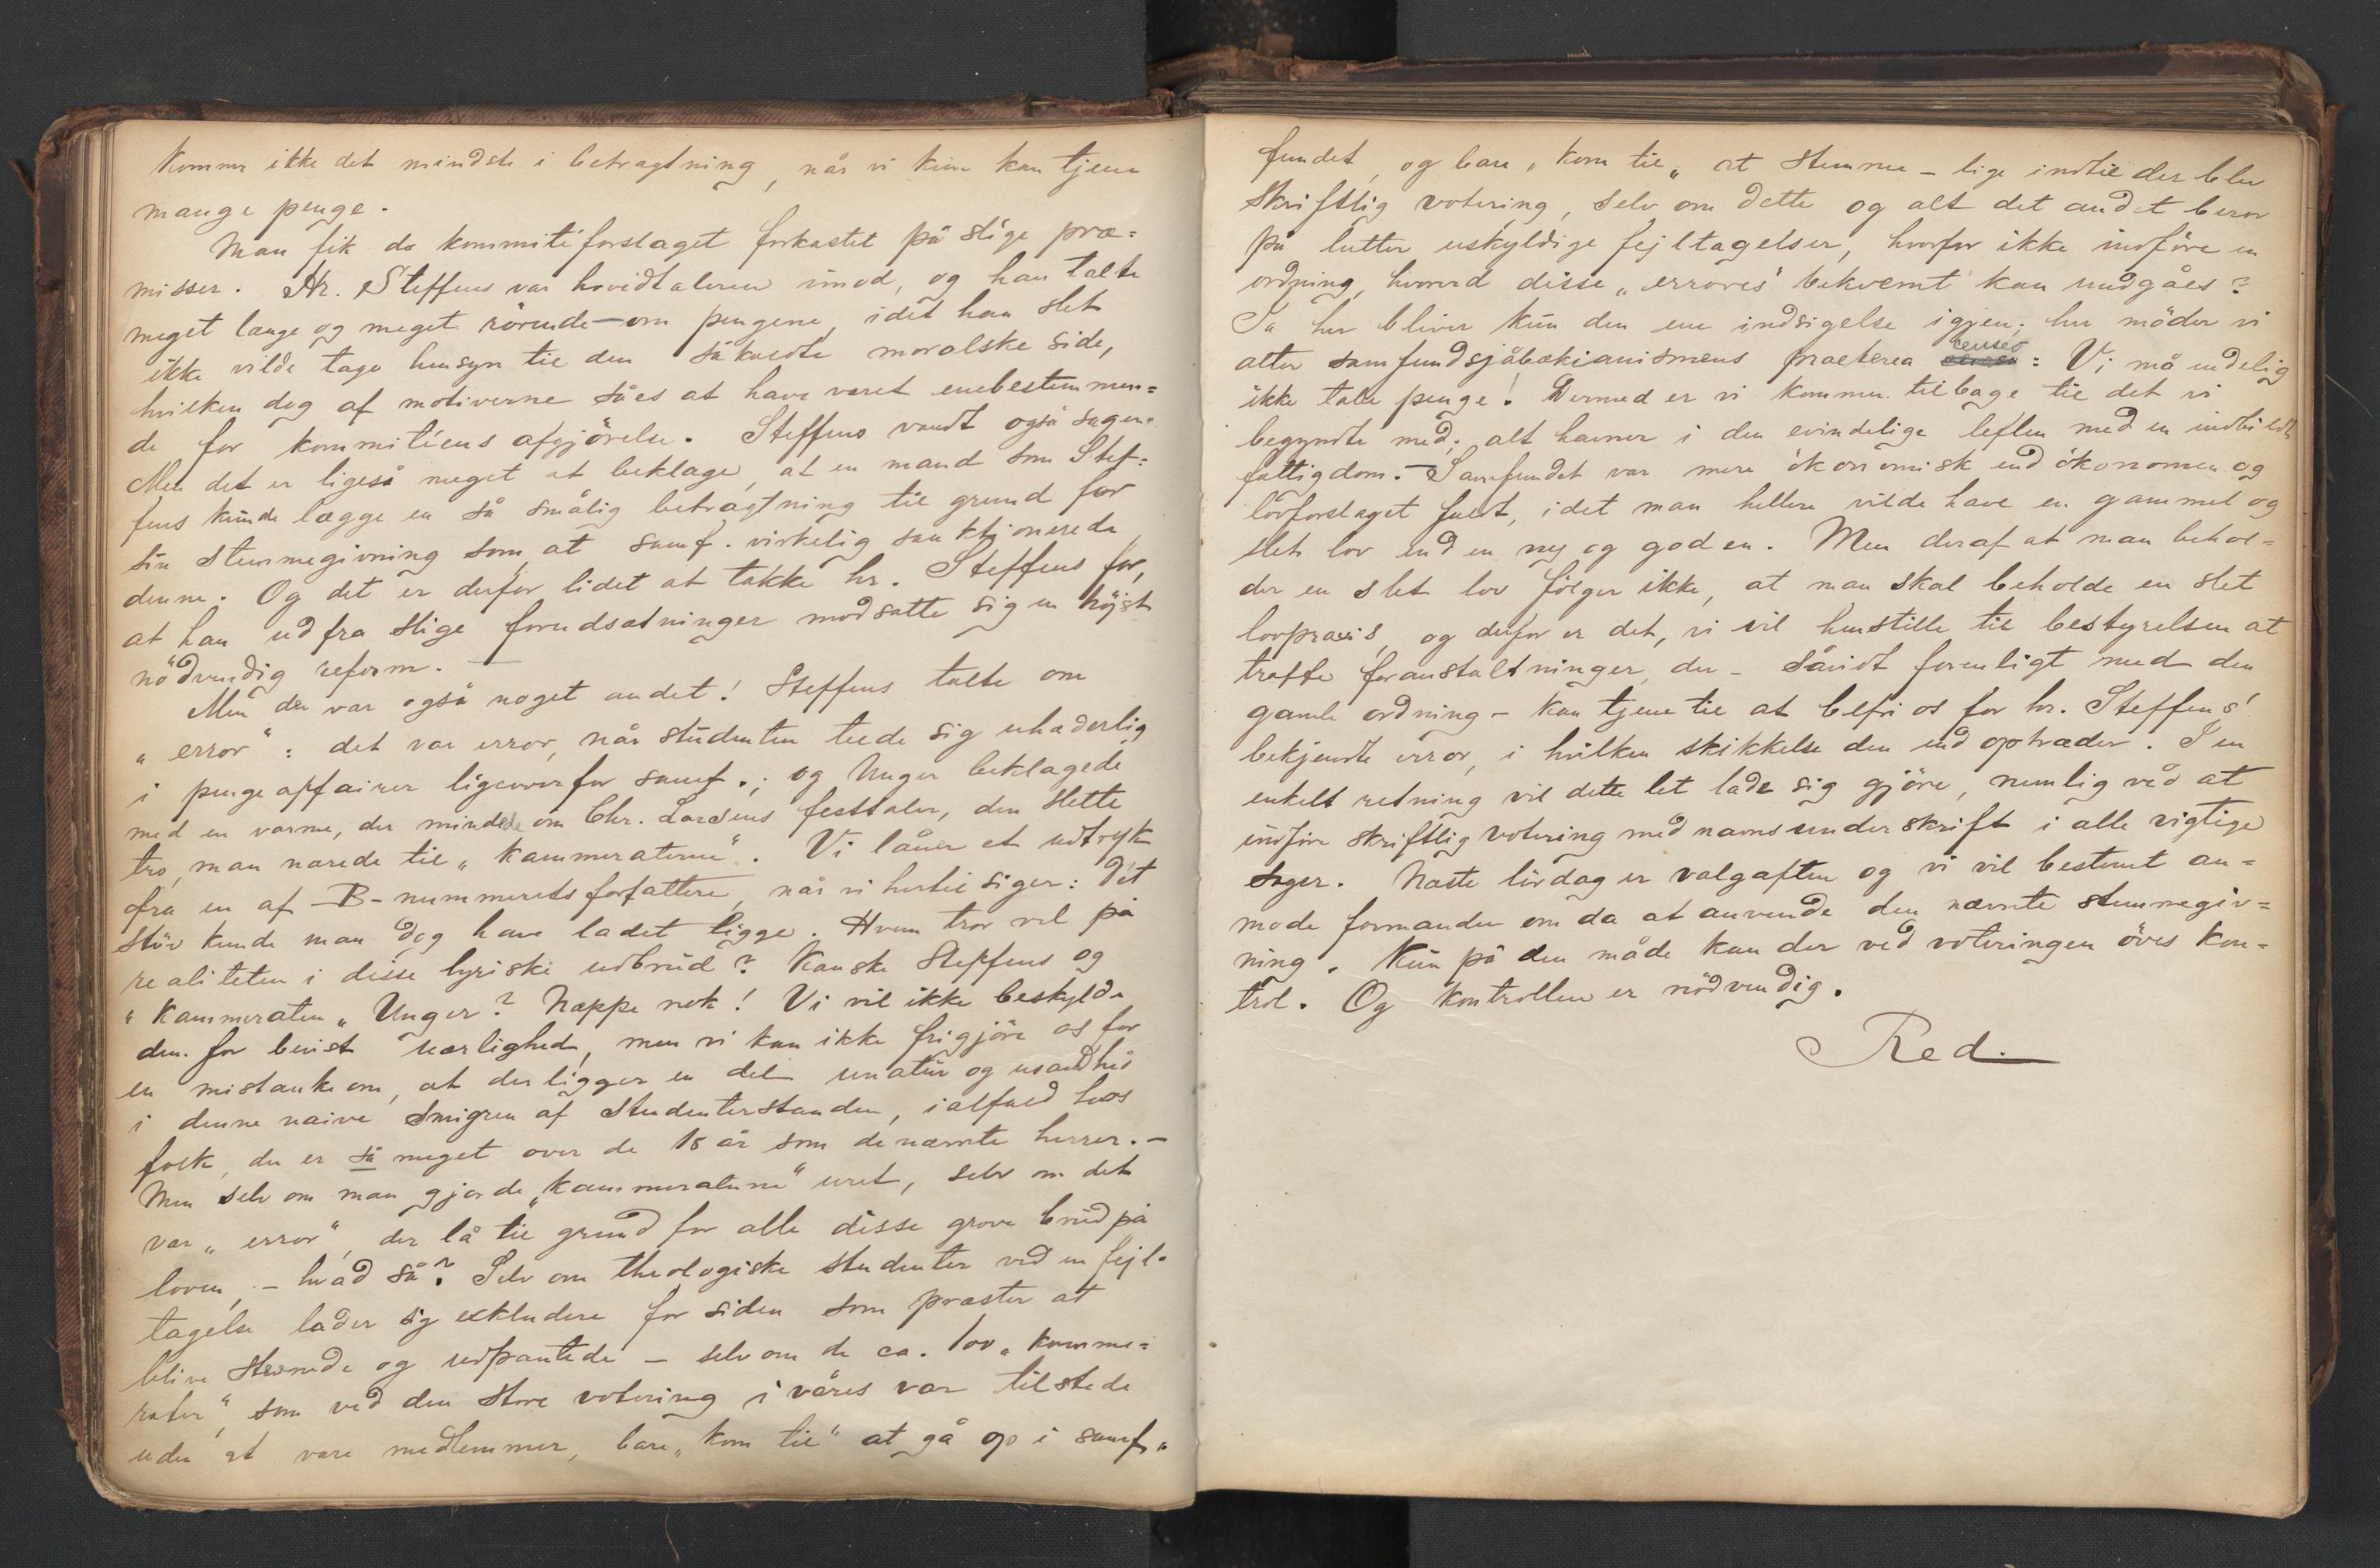 kommer ikke det mindste i betragtning, når vi kun kan tjene
mange penge.
Man fik da kommitéforslaget forkastet på slige præ=
misser. Hr. Steffens var hovedtaleren imod, og han talte
meget længe og meget rørende – om pengene, idet han slet
ikke vilde tage hensyn til den såkaldte moralske side,
hvilken dog af motiverne såes at have været enebestemmen=
de for kommitéens afgjörelse. Steffens vandt også sagen.
Men det er ligeså meget at beklage, at en mand som Stef=
fens kunde lægge en så smålig betragtning til grund for
sin stemmegivning som at samf. virkelig sanktionerede
denne. Og det er derfor lidet at takke hr. Steffens for,
at han ud fra slige forudsætninger modsatte sig en höjst
nödvendig reform. —
Men der var også noget andet! Steffens talte om
„error“: det var error, når studenten teede sig uhæderlig
i pengeaffairer ligeoverfor samf.; og Unger beklagede
med en varme, der mindede om Chr. Larsens festtaler, den slette
tro, man nærede til „kammeraterne“. Vi låner et udtryk
fra en af B-nummerets forfattere, når vi hertil siger: Det
stöv kunde man dog have ladet ligge. Hvem tror vel på
realiteten i disse lyriske udbrud? Kanske Steffens og
„kammeraten„ Unger? Næppe nok! Vi vil ikke beskylde
dem for bevist uærlighed, men vi kan ikke frigjöre os for
en mistanke om, at der ligger en del unatur og usandhed
i denne naive smigren af studenterstanden, ialfald hos
folk, der er så meget over de 18 år som de nævnte herrer. –
Men selv om man gjorde „kammeraterne“ uret, selv om det
var „error“, der lå til grund for alle disse grove brud på
loven, – hvad så? Selv om theologiske studenter ved en fejl=
tagelse lader sig exkludere for siden som præster at
blive stevnede og udpantede – selv om de ca. 100 „kamme=
rater“, som ved den store votering i våres var tilstede
uden at være medlemmer, bare „kom til“ at gå op i samf„
fundet, og bare „kom til„ at stemme – lige indtil der blev
skriftlig votering, selv om dette og alt det andet beror
på lutter uskyldige fejltagelser, hvorfor ikke indföre en
ordning, hvorved disse „errores“ bekvemt kan undgåes?
Ja her bliver kun den ene indsigelse igjen; her möder vi
atter samfundsjåbækianismens praeterea censeo: Vi må endelig
ikke tabe penge! Dermed er vi kommen tilbage til det vi
begyndte med; alt havner i den evindelige leflen med en indbildt
fattigdom. – Samfundet var mere ökonomisk end ökonomen og
lovforslaget faldt, idet man hellere vilde have en gammel og
slet lov end en ny og god en. Men deraf at man behol=
der en slet lov fölger ikke, at man skal beholde en slet
lovpraxis, og derfor er det, vi vil henstille til bestyrelsen at
træffe foranstaltninger, der – såvidt forenligt med den
gamle ordning – kan tjene til at befri os for hr. Steffens'
bekjendte error, i hvilken skikkelse den end optræder. I en
enkelt retning vil dette let lade sig gjöre, nemlig ved at
indföre skriftlig votering med navns underskrift i alle vigtige
sager. Næste lördag er valgaften og vi vil bestemt an=
mode formanden om da at anvende den nævnte stemmegiv=
ning. Kun på den måde kan der ved voteringen öves kon=
trol. Og kontrollen er nödvendig.
Red.